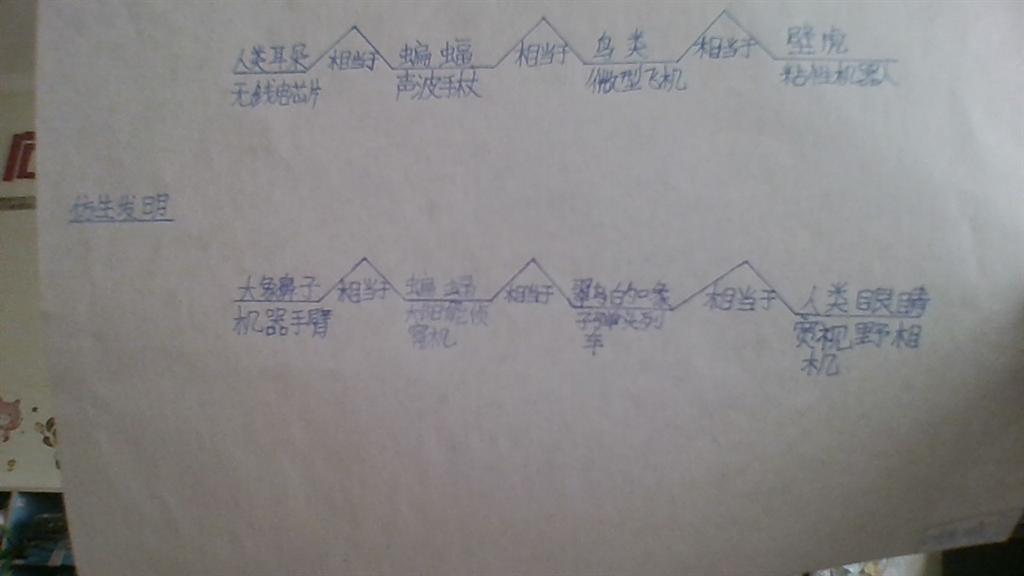 人类耳朵 相当于 蝙蝠 相当于 鸟类 相当于 壁虎
无线电芯片 声波手杖 微型飞机 粘性机器人
仿生发明
大象鼻子 相当于 蝙蝠 相当于 翠鸟的喙 相当于 人类眼睛
机器手臂 太阳能侦 子弹头列 宽视野相
察机 车 机